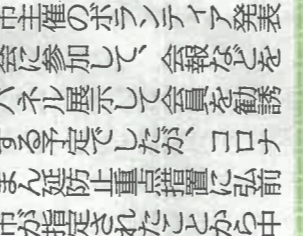 市主催のボランティア発表
会に参加して、会報などを
パネル展示して会員を勧誘
する予定でしたが、コロナ
まん延防止重点措置に弘前
市が指定されたことから中